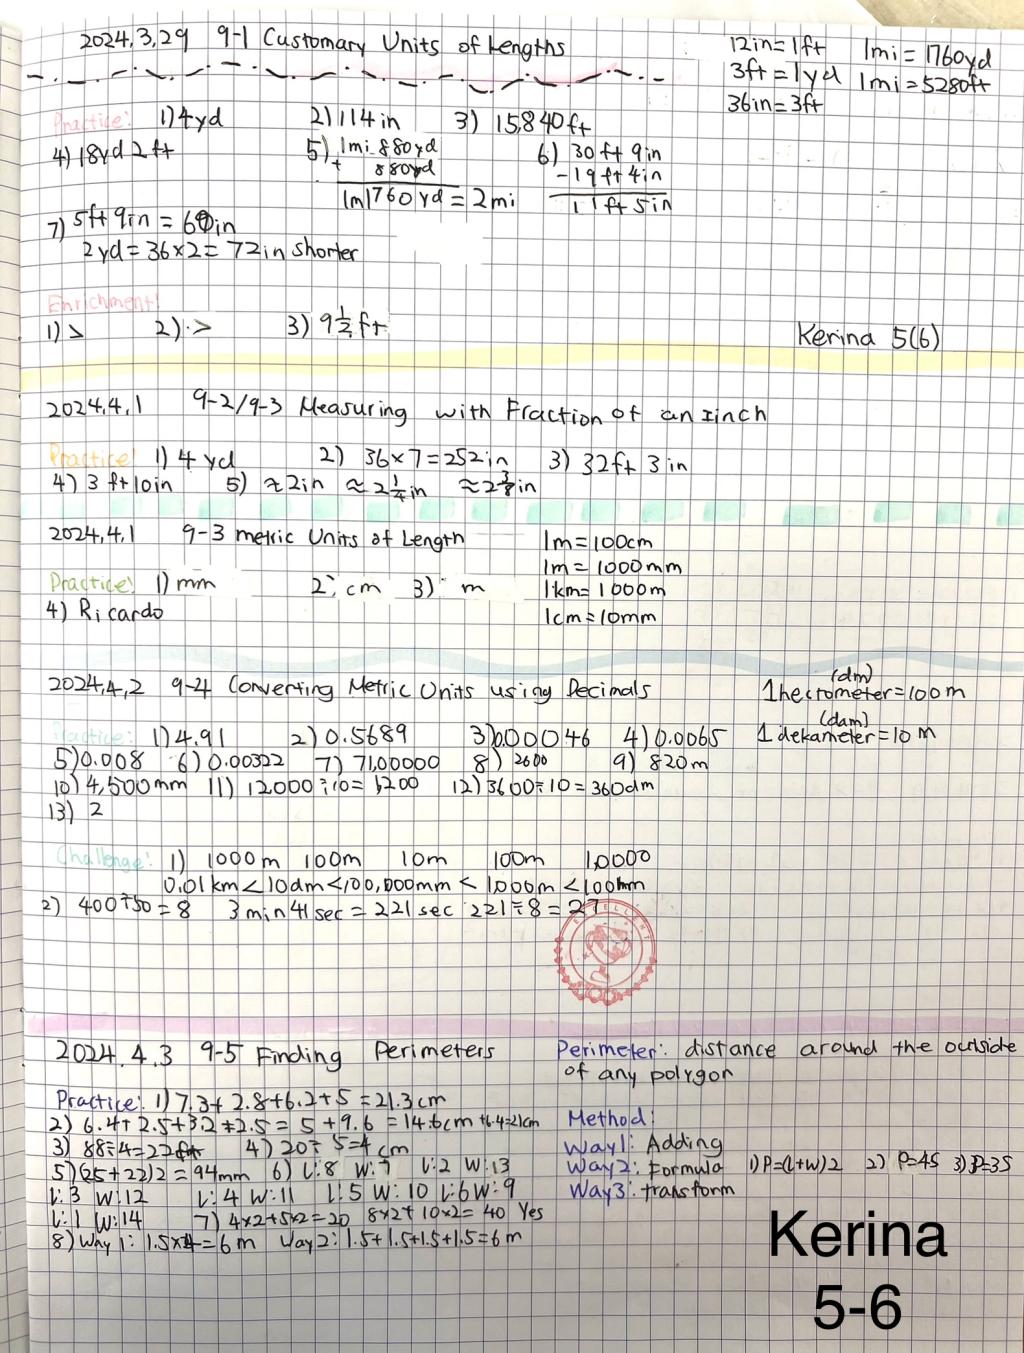 2024,3,29 9-1 Customary Units of Lengths
12in=1ft 1mi=1760yd
3ft=1yd 1mi=5280ft
36in=3ft
Practice: 1)4yd 2)114in 3) 15,840ft
4) 18yd 2ft 5) 1mi 880yd 6) 30ft 9in
+ 880yd -19ft 4in
1m1760yd=2mi 11ft 5in
7) 5ft 9in = 69in
2yd=36×2=72in shorter
Enrichment!
1) > 2) > 3) 9 1/2 ft
Kerina 5(6)
2024,4,1 9-2/9-3 Measuring with Fraction of an Iinch
Practice! 1) 4 yd 2) 36×7=252in 3) 32ft 3 in
4) 3 ft 10in 5) ≈2in ≈2 1/4 in ≈2 3/8 in
2024,4,1 9-3 metric Units of Length
1m=100cm
1m=1000mm
Practice! 1) mm 2; cm 3) m
1km=1000m
4) Ricardo
1cm=10mm
2024,4,2 9-4 Converting Metric Units using Decimals
(dm)
1 hectometer=100m
(dam)
1 dekameter=10m
Practice: 1)4.91 2)0.5689 3)0.00046 4)0.0065
5)0.008 6)0.00322 7)71,00000 8) 2600 9) 820m
10) 4,500mm 11) 12000÷10=1,200 12)3600÷10=360dm
13) 2
Challenge! 1) 1000m 100m 10m 100m 1,0000
0.01km<10dm<100,000mm<1,000m<100hm
2) 400÷50=8 3min 41sec=221sec 221÷8=27
EXCELLENT
2024.4.3 9-5 Finding Perimeters
Perimeter: distance around the outside
of any polygon
Practice! 1) 7.3+2.8+6.2+5=21.3cm
2) 6.4+2.5+3.2+2.5=5+9.6=14.6cm+6.4=21cm
Method!
3) 88÷4=22ft 4) 20÷5=4cm
Way1: Adding
5)(25+22)2=94mm 6) L:8 W:7 L:2 W:13
Way2: Formula 1)P=(L+W)2 2) P=4S 3)P=3S
L:3 W:12 L:4 W:11 L:5 W:10 L:6 W:9
Way3: transform
L:1 W:14 7) 4×2+5×2=20 8×2+10×2=40 Yes
8)Way 1: 1.5×4=6m Way2: 1.5+1.5+1.5+1.5=6m
Kerina
5-6